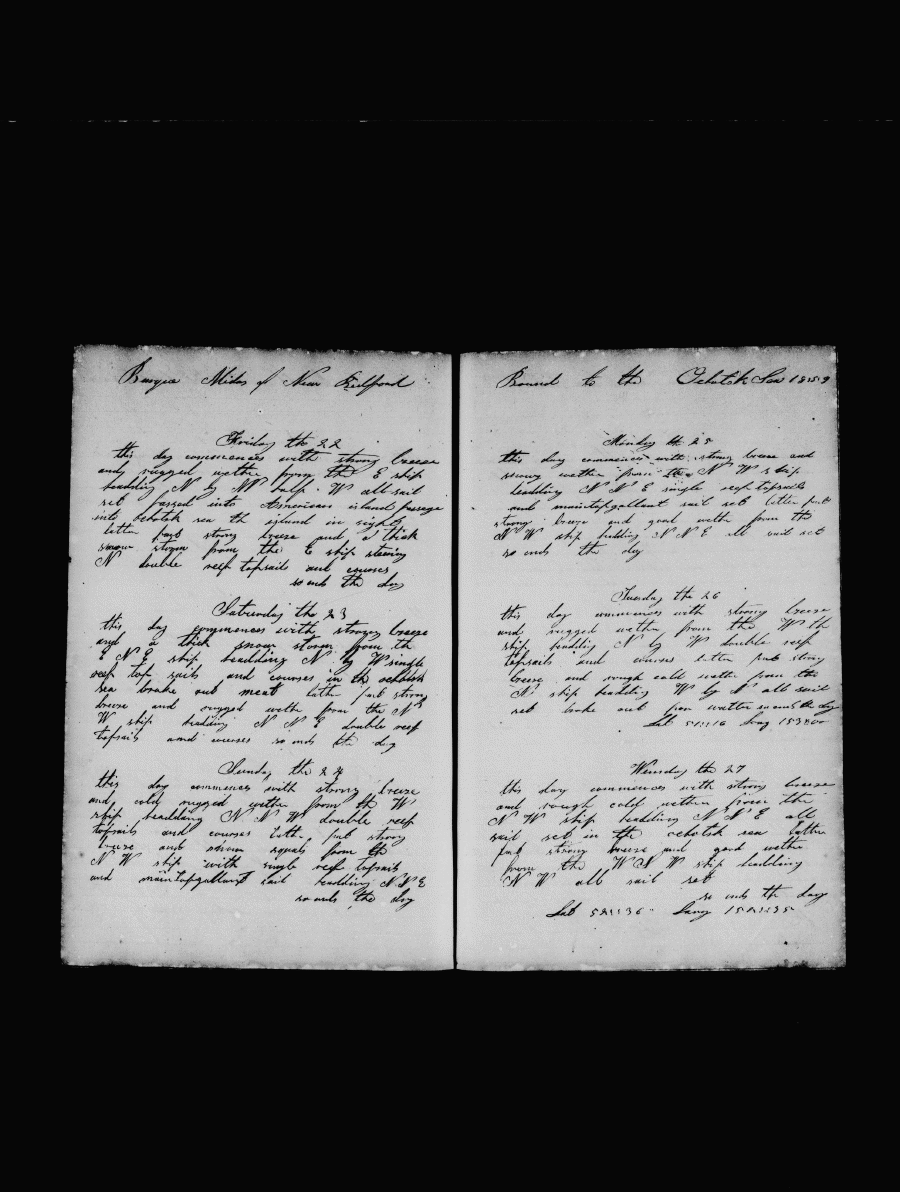 Barque Midas of New Bedford
Friday the 22
this day commences with strong breeze
and rugged wether from the E ship
headding N by W half W all sail
set passed into American island passage
into ochotsk sea th island in sight
latter part strong breeze and a thick
snow storm from the E ship steering
N double reef topsails and courses
so ends the day
Saturday the 23
this day commences with strong breeze
and a thick snow storm from the
E N E ship headding N by W single
reef top sails and courses in the ochotsk
sea broke out meat latter part strong
breeze and rugged weth from the N
W ship headding N N E double reef
topsails and courses so ends the day
Sunday the 24
this day commences with strong breeze
and cold rugged wether from the W
ship headding N N W double reef
topsails and courses latter part strong
breeze and snow squals from the
N W ship with single reef topsails
and maintopgallant sail headding N N E
so ends the day
Bound to the Ochotsk Sea 1859
Monday the 25
this day commences with strong breeze and
snowy wether from the N W ship
headding N N E single reef topsails
and maintopgallant sail set latter part
strong breeze and good wether from the
N W ship headding N N E all sail set
so ends the day
Tuesday the 26
this day commences with strong breeze
and rugged wether from the W th
ship headding N by W double reef
topsails and courses latter part strong
breeze and rough cold wether from the
N ship headding W by N all sail
set broke out watter so ends the day
Lat Long
Wensday the 27
this day commences with strong breeze
and rough cold wether from the
N W ship headding N N E all
sail set in the ochotsk sea latter
part strong breeze and good wether
from the W N W ship headding
N W all sail set
so ends the day
Lat Long